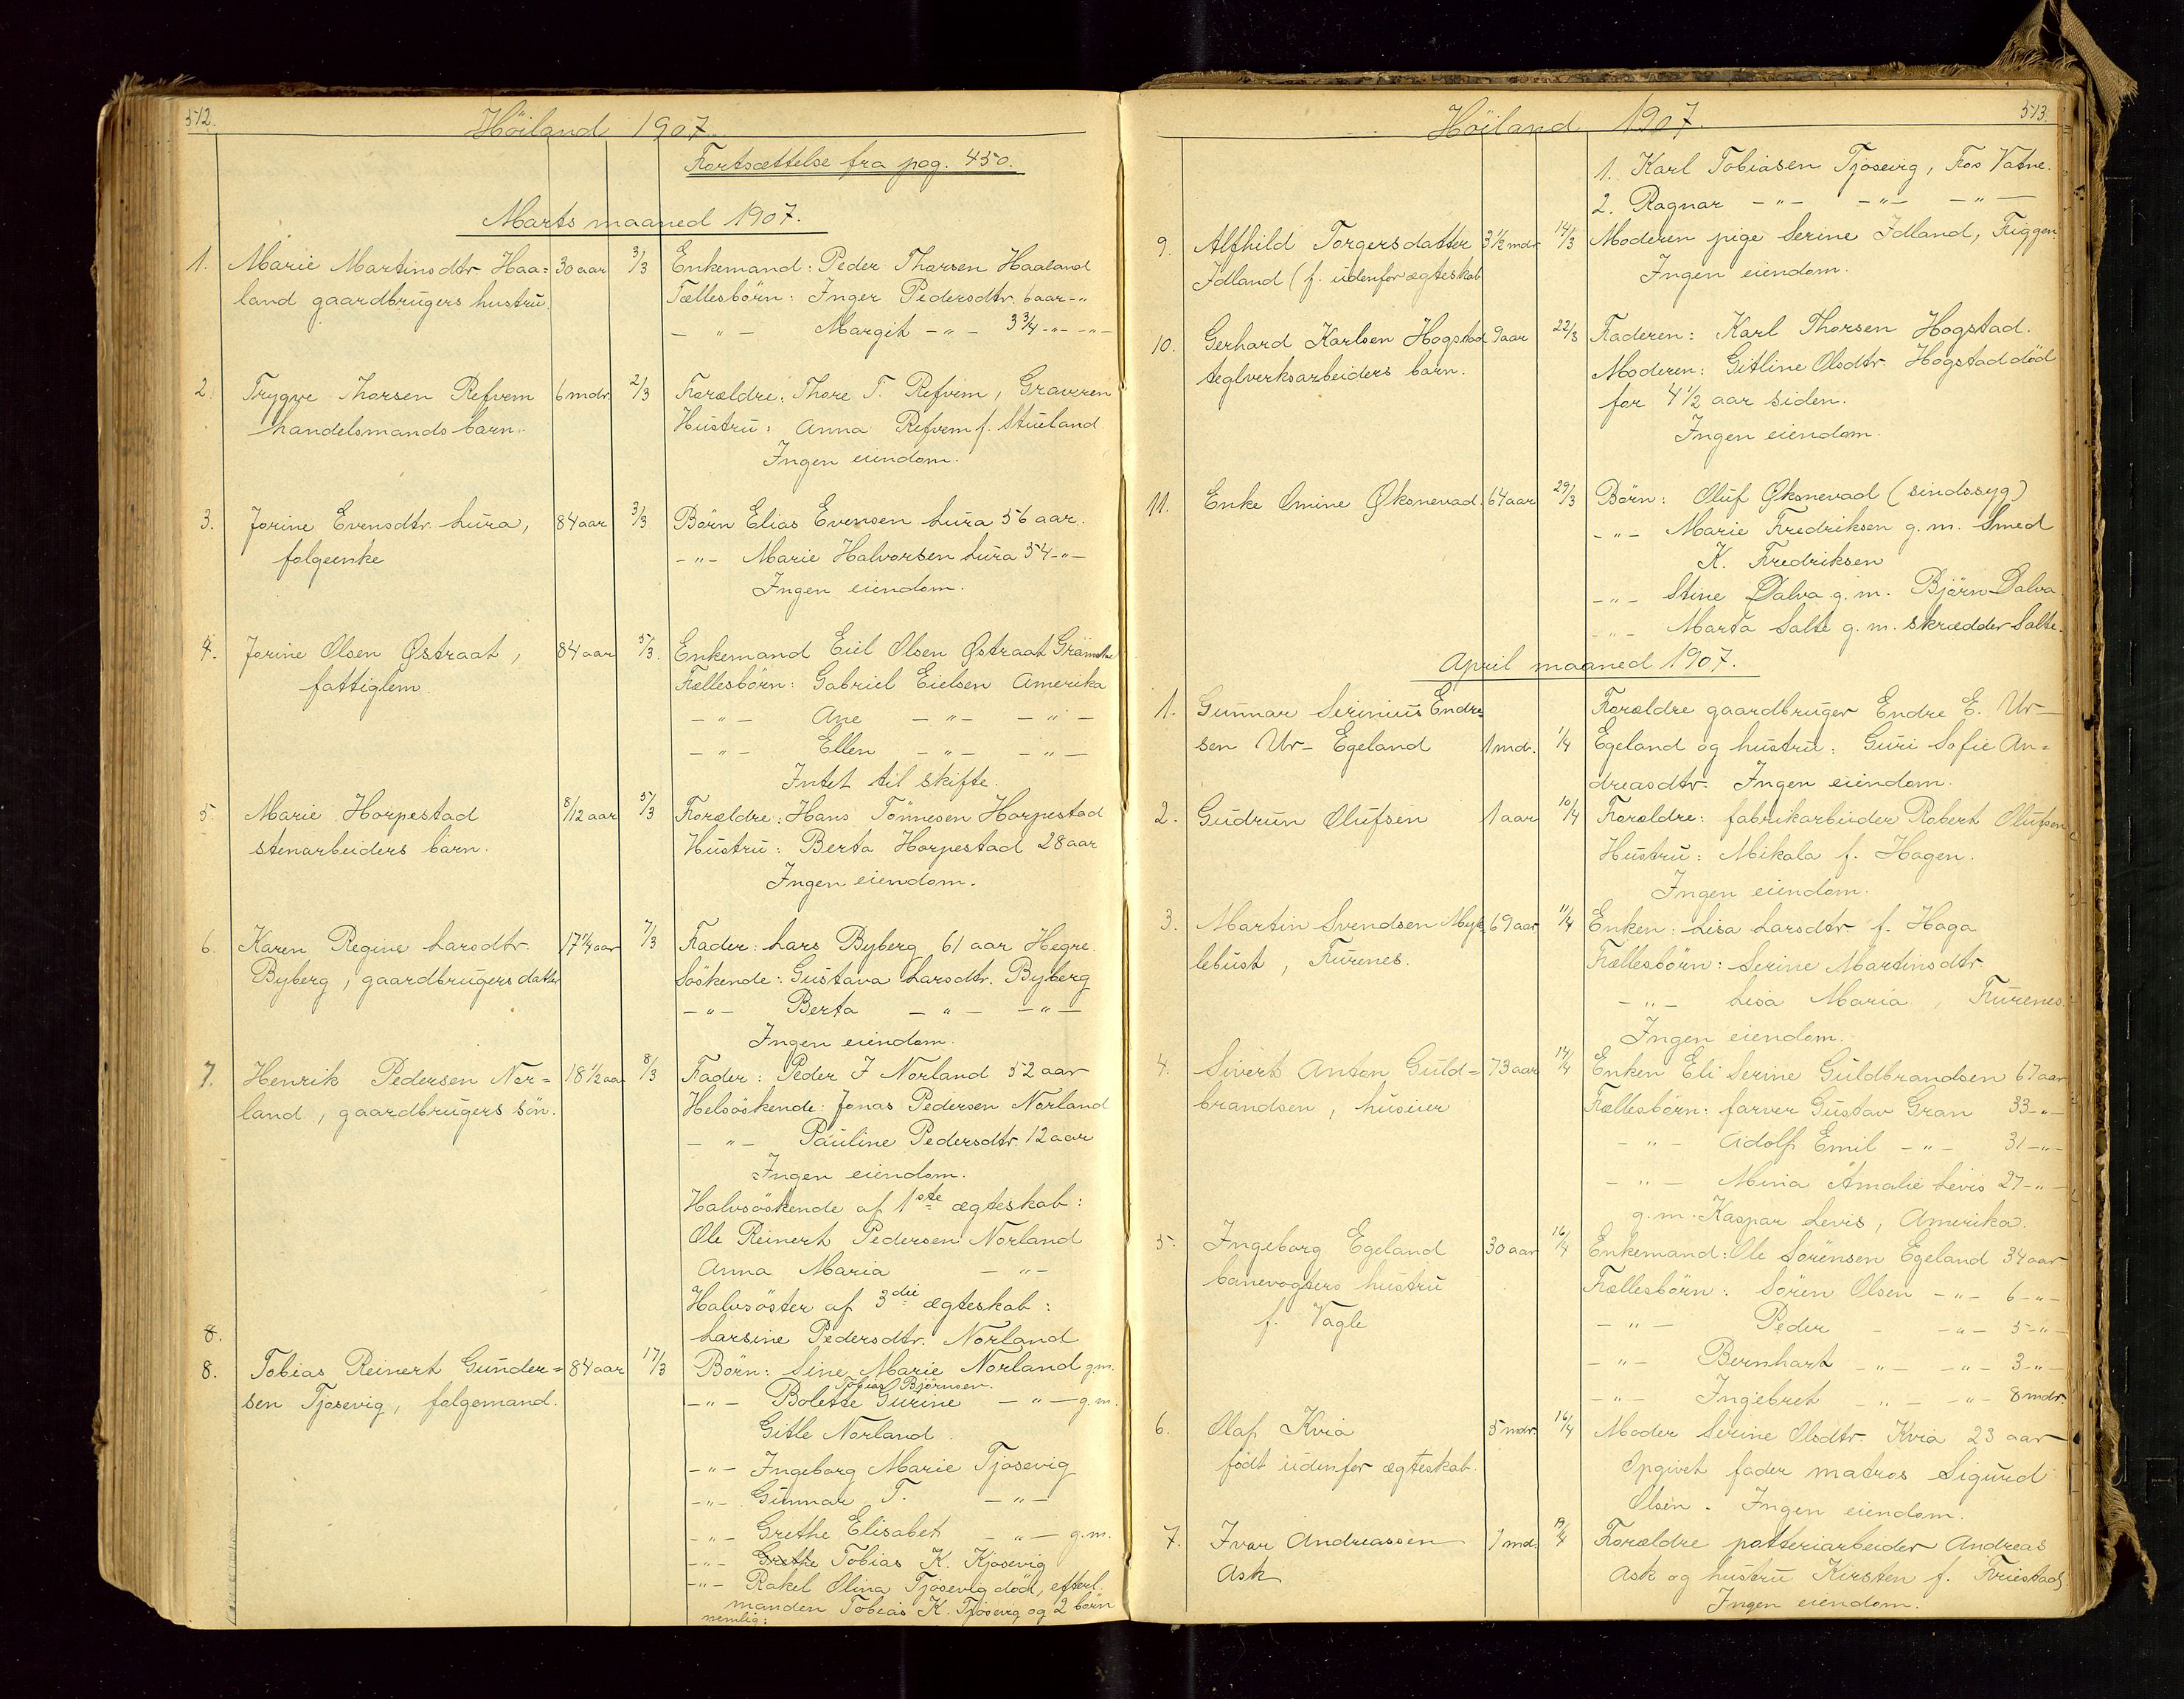 512.
Höiland 1907.
Fortsættelse fra pag. 450.
Marts maaned 1907.
1. Marie Martinsdtr. Haa= 30 aar 3/3 Enkemand: Peder Thorsen Haaland
land gaardbrugers hustru. Fællesbörn: Inger Pedersdtr. 6 aar -"
- " - Margit - " - 3 3/4 -"- -"-
2. Trygve Thorsen Refvem 6 mdr. 2/3 Forældre: Thore T. Refvem, Graveren
handelsmands barn. Hustru: Anna Refvem f. Stueland
Ingen eiendom.
3. Jorine Evensdtr. Lura, 84 aar 3/3 Börn Elias Evensen Lura 56 aar.
folgeenke - " - Marie Halvorsen Lura 54 -"-
Ingen eiendom.
4. Jorine Olsen Østraat, 84 aar 5/3. Enkemand Eiel Olsen Østraat
fattiglem. Fællesbörn: Gabriel Eielsen Amerika
- " - Ane - " - - " -
- " - Ellen - " - - " -
Intet til skifte.
5. Marie Horpestad 8/12 aar 5/3 Forældre: Hans Tönnesen Horpestad
stenarbeiders barn. Hustru: Berta Horpestad 28 aar
Ingen eiendom.
6. Karen Regine Larsdtr. 17 1/4 aar 7/3 Fader: Lars Byberg 61 aar Hegre.
Byberg, gaardbrugers datter Söskende: Gustava Larsdtr. Byberg
- " - Berta - " - - " -
Ingen eiendom.
7. Henrik Pedersen Nor= 18 1/2 aar 8/3 Fader: Peder J Norland 52 aar
land, gaardbrugers sön. Helsöskende: Jonas Pedersen Norland
- " - Pauline Pedersdtr. 12 aar
Ingen eiendom.
Halvsöskende af 1ste ægteskab:
Ole Reinert Pedersen Norland
Anna Maria - " -
Halvsöster af 3die ægteskab:
8. Larsine Pedersdtr. Norland
8. Tobias Reinert Gunder= 84 aar 17/3 Börn: Sine Marie Norland g.m.
Tobias Björnsen.
sen Tjosevig, folgemand. - " - Bolette Gurine - " - g.m.
Gitle Norland.
- " - Ingeborg Marie Tjosevig
- " - Gunnar T. - " -
- " - Grethe Elisabet - " - g.m.
- " - Grethe Tobias K. Kjosevig
- " - Rakel Olina Tjosevig död, efterl.
manden Tobias K. Tjosevig og 2 börn
nemlig:
513.
Höiland 1907.
1. Karl Tobiasen Tjosevig, Fos Vatne.
2. Ragnar - " - - " - - " -
9. Alfhild Torgersdatter 3 1/2 mdr 14/3 Moderen pige Serine Idland, Figgen.
Idland (f. udenfor ægteskab Ingen eiendom.
10. Gerhard Karlsen Hogstad 9 aar 22/3 Faderen: Karl Thorsen Hogstad.
teglverksarbeiders barn. Moderen: Gitline Olsdtr. Hogstad död
for 4 1/2 aar siden.
Ingen eiendom.
11. Enke Omine Øksnevad. 64 aar 29/3 Börn: Oluf Øksnevad (sindssyg)
- " - Marie Fredriksen g.m. Smed
K. Fredriksen
- " - Stine Dalva g.m. Björn Dalva
- " - Marta Salte g.m. skrædder Salte.
April maaned 1907.
1. Gunnar Serinius Endre= Forældre gaardbruger Endre E. Ur-
sen Ur-Egeland 1 md. 1/4 Egeland og hustru: Guri Sofie An=
dreasdtr. Ingen eiendom.
2. Gudrun Olufsen 1 aar 10/4 Forældre: fabrikarbeider Robert Olufsen
Hustru: Mikala f. Hagen.
Ingen eiendom.
3. Martin Svendsen Myk= 69 aar 11/4 Enken: Lisa Larsdtr f. Haga
lebust, Furenes. Fællesbörn: Serine Martinsdtr.
- " - Lisa Maria, Furenes.
Ingen eiendom.
4. Sivert Anton Guld= 73 aar 14/4 Enken Eli Serine Guldbrandsen 67 aar
brandsen, huseier Fællesbörn: farver Gustav Gran 33 -"-
- " - Adolf Emil - " - 31 -"-
- " - Mina Amalie Levis 27 -"-
g.m. Kaspar Levis, Amerika.
5. Ingeborg Egeland 30 aar 16/4 Enkemand: Ole Sörensen Egeland 34 aar
banevogters hustru Fællesbörn: Sören Olsen - " - 6 -"-
f. Vagle - " - Peder - - " - 5 -"-
- " - Bernhart - " - - " - 3 -"-
- " - Ingebret - " - - " - 8 mdr.
6. Olaf Kvia 5 mdr. 16/4 Moder Serine Olsdtr. Kvia 23 aar
födt udenfor ægteskab. Opgivet fader matros Sigurd
Olsen. Ingen eiendom.
7. Ivar Andreassen 1 md Forældre potteriarbeider Andreas
Ask Ask og hustru Kirsten f. Friestad
Ingen eiendom.